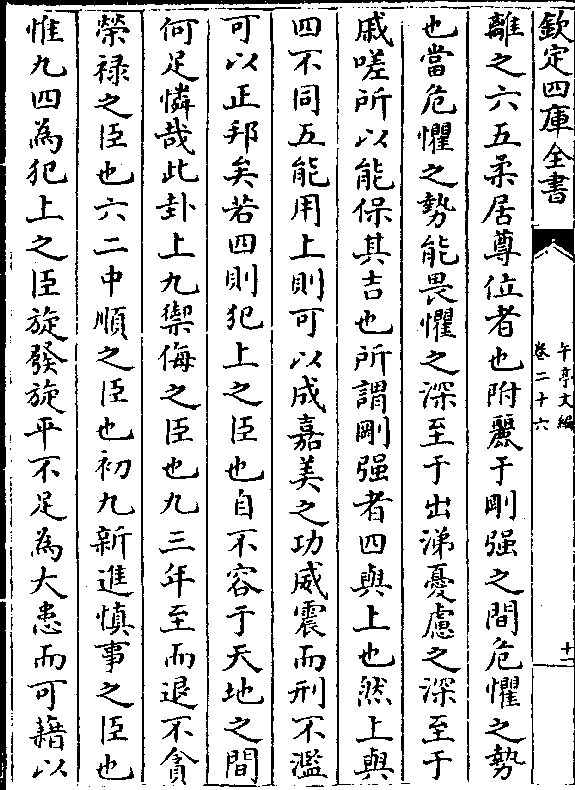 欽定四庫全書
午亭文編
卷二十六
十二
離之六五柔居尊位者也附麗于剛强之間危懼之勢
也當危懼之勢能畏懼之深至于出涕憂慮之深至于
戚嗟所以能保其吉也所謂剛强者四與上也然上與
四不同五能用上則可以成嘉美之功威震而刑不濫
可以正邦矣若四則犯上之臣也自不容于天地之間
何足憐哉此卦上九禦侮之臣也九三年至而退不貪
榮禄之臣也六二中順之臣也初九新進慎事之臣也
惟九四為犯上之臣旋發旋平不足為大患而可藉以